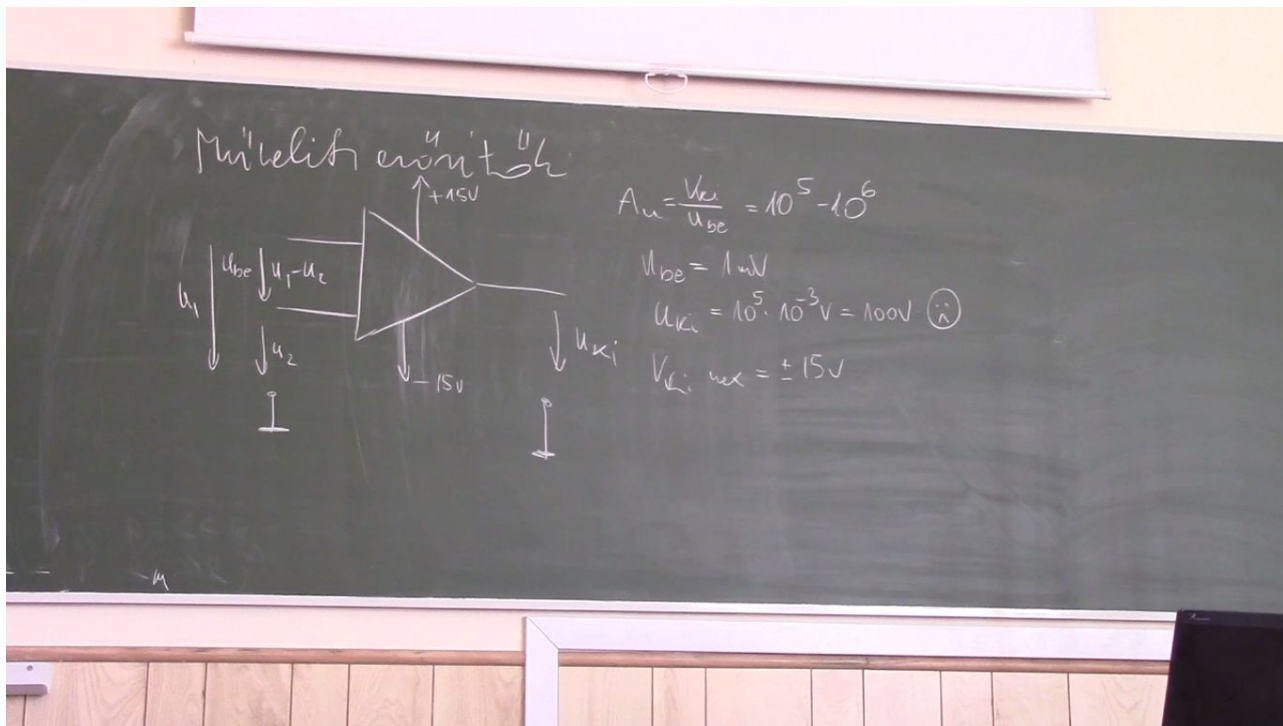 Műveleti erősítők
+15V
u₁
u_be
u₁-u₂
u₂
-15V
u_ki
A_u = V_ki / u_be = 10⁵-10⁶
U_be = 1mV
U_ki = 10⁵ · 10⁻³V = 100V ☹
V_ki max = ± 15V